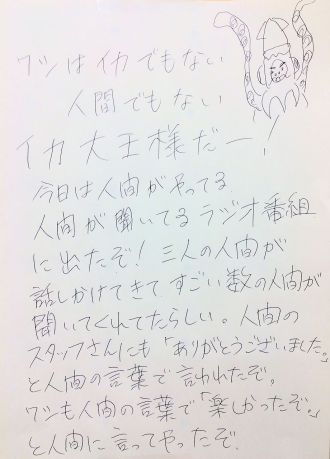 ワシはイカでもない
人間でもない
イカ大王様だー!
今日は人間がやってる
人間が聞いてるラジオ番組
に出たぞ!三人の人間が
話しかけてきて、すごい数の人間が
聞いてくれてたらしい。人間の
スタッフさんにも「ありがとうございました。」
と人間の言葉で言われたぞ。
ワシも人間の言葉で「楽しかったぞ。」
と人間に言ってやったぞ.